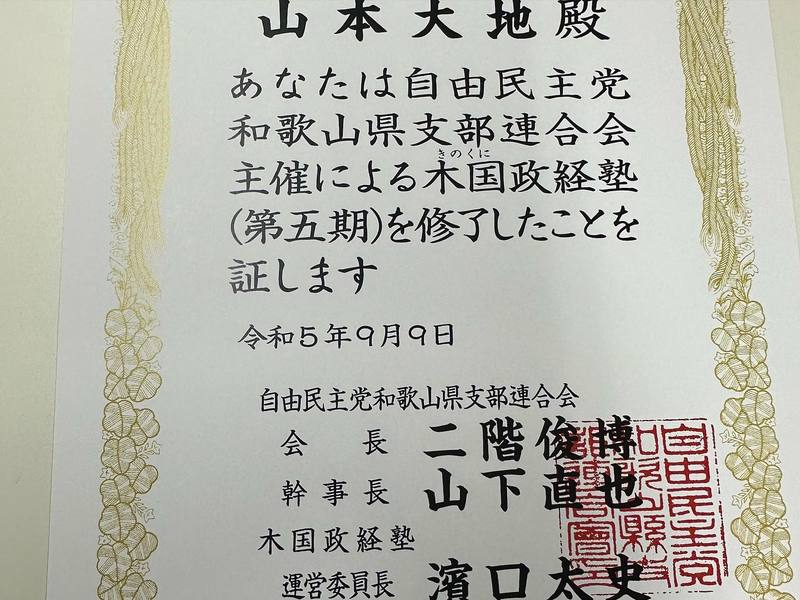 山本大地殿
あなたは自由民主党
和歌山県支部連合会
きのくに
主催による木国政経塾
(第五期)を修了したことを
証します
令和5年9月9日
自由民主党和歌山県支部連合会
会長 二階俊博
幹事長 山下直也
木国政経塾
運営委員長 濱口太史